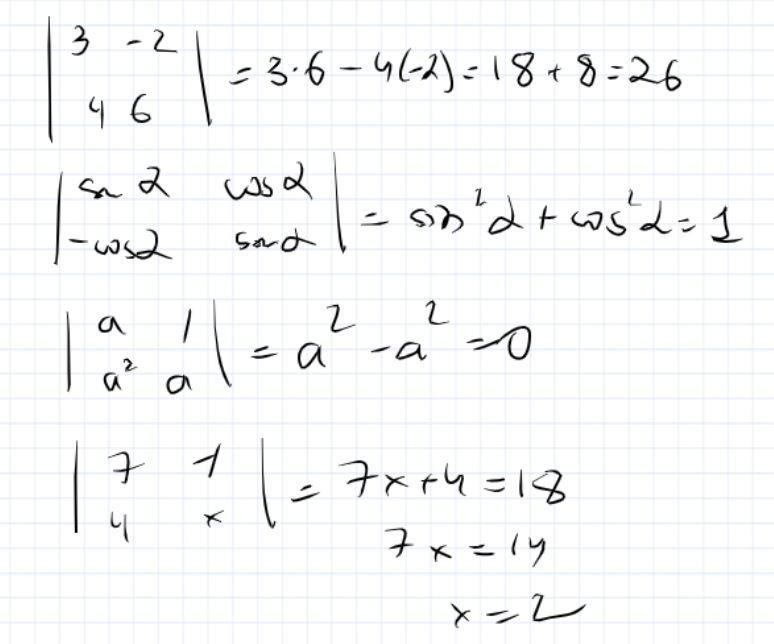 | 3 -2 |
| 4 6 | = 3·6 - 4(-2) = 18 + 8 = 26
| sin α cos α |
| -cos α sin α | = sin²α + cos²α = 1
| a 1 |
| a² a | = a² - a² = 0
| 7 -1 |
| 4 x | = 7x + 4 = 18
7x = 14
x = 2